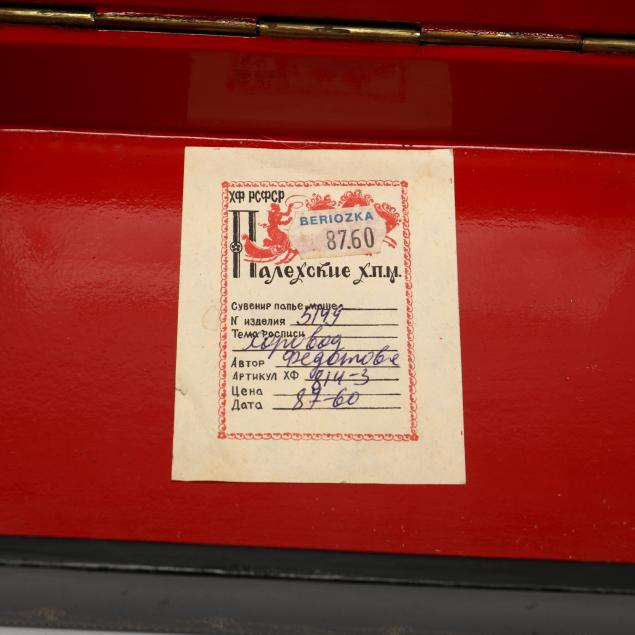 ХФ РСФСР
BERIOZKA
87.60
Палехские Х.П.М.
Сувенир папье-маше
N изделия 5149
Тема росписи
Хоровод
Автор Федотова
Артикул ХФ
Цена 87-60
Дата